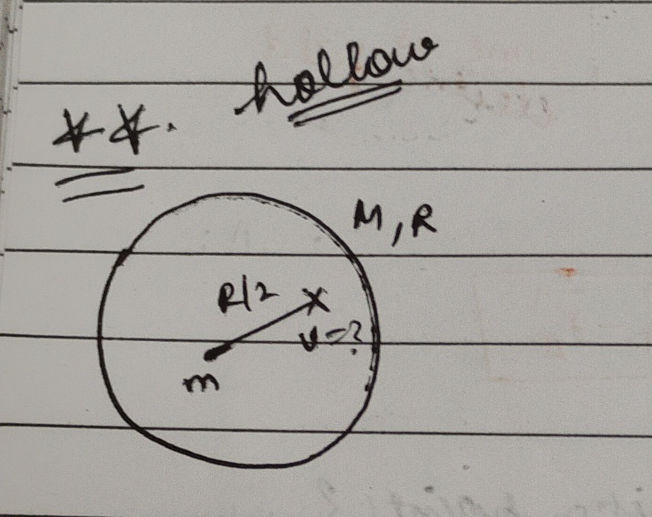 hollow
**.
M, R
R/2
v=?
m